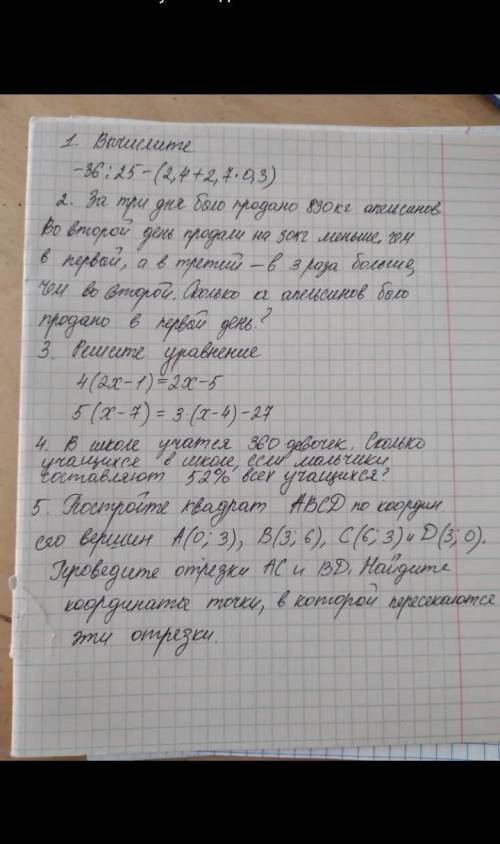 1. Вычислите
-36:25-(2,4+2,7·0,3)
2. За три дня было продано 830кг апельсинов
Во второй день продали на 30кг меньше, чем
в первый, а в третий – в 3 раза больше,
чем во второй. Сколько кг апельсинов было
продано в первый день?
3. Решите уравнение
4(2x-1)=2x-5
5(x-7)=3·(x-4)-27
4. В школе учатся 360 девочек. Сколько
учащихся в школе, если мальчики
составляют 52% всех учащихся?
5. Постройте квадрат ABCD по координ.
его вершин A(0;3), B(3;6), C(6;3) и D(3;0).
Проведите отрезки AC и BD. Найдите
координаты точки, в которой пересекаются
эти отрезки.